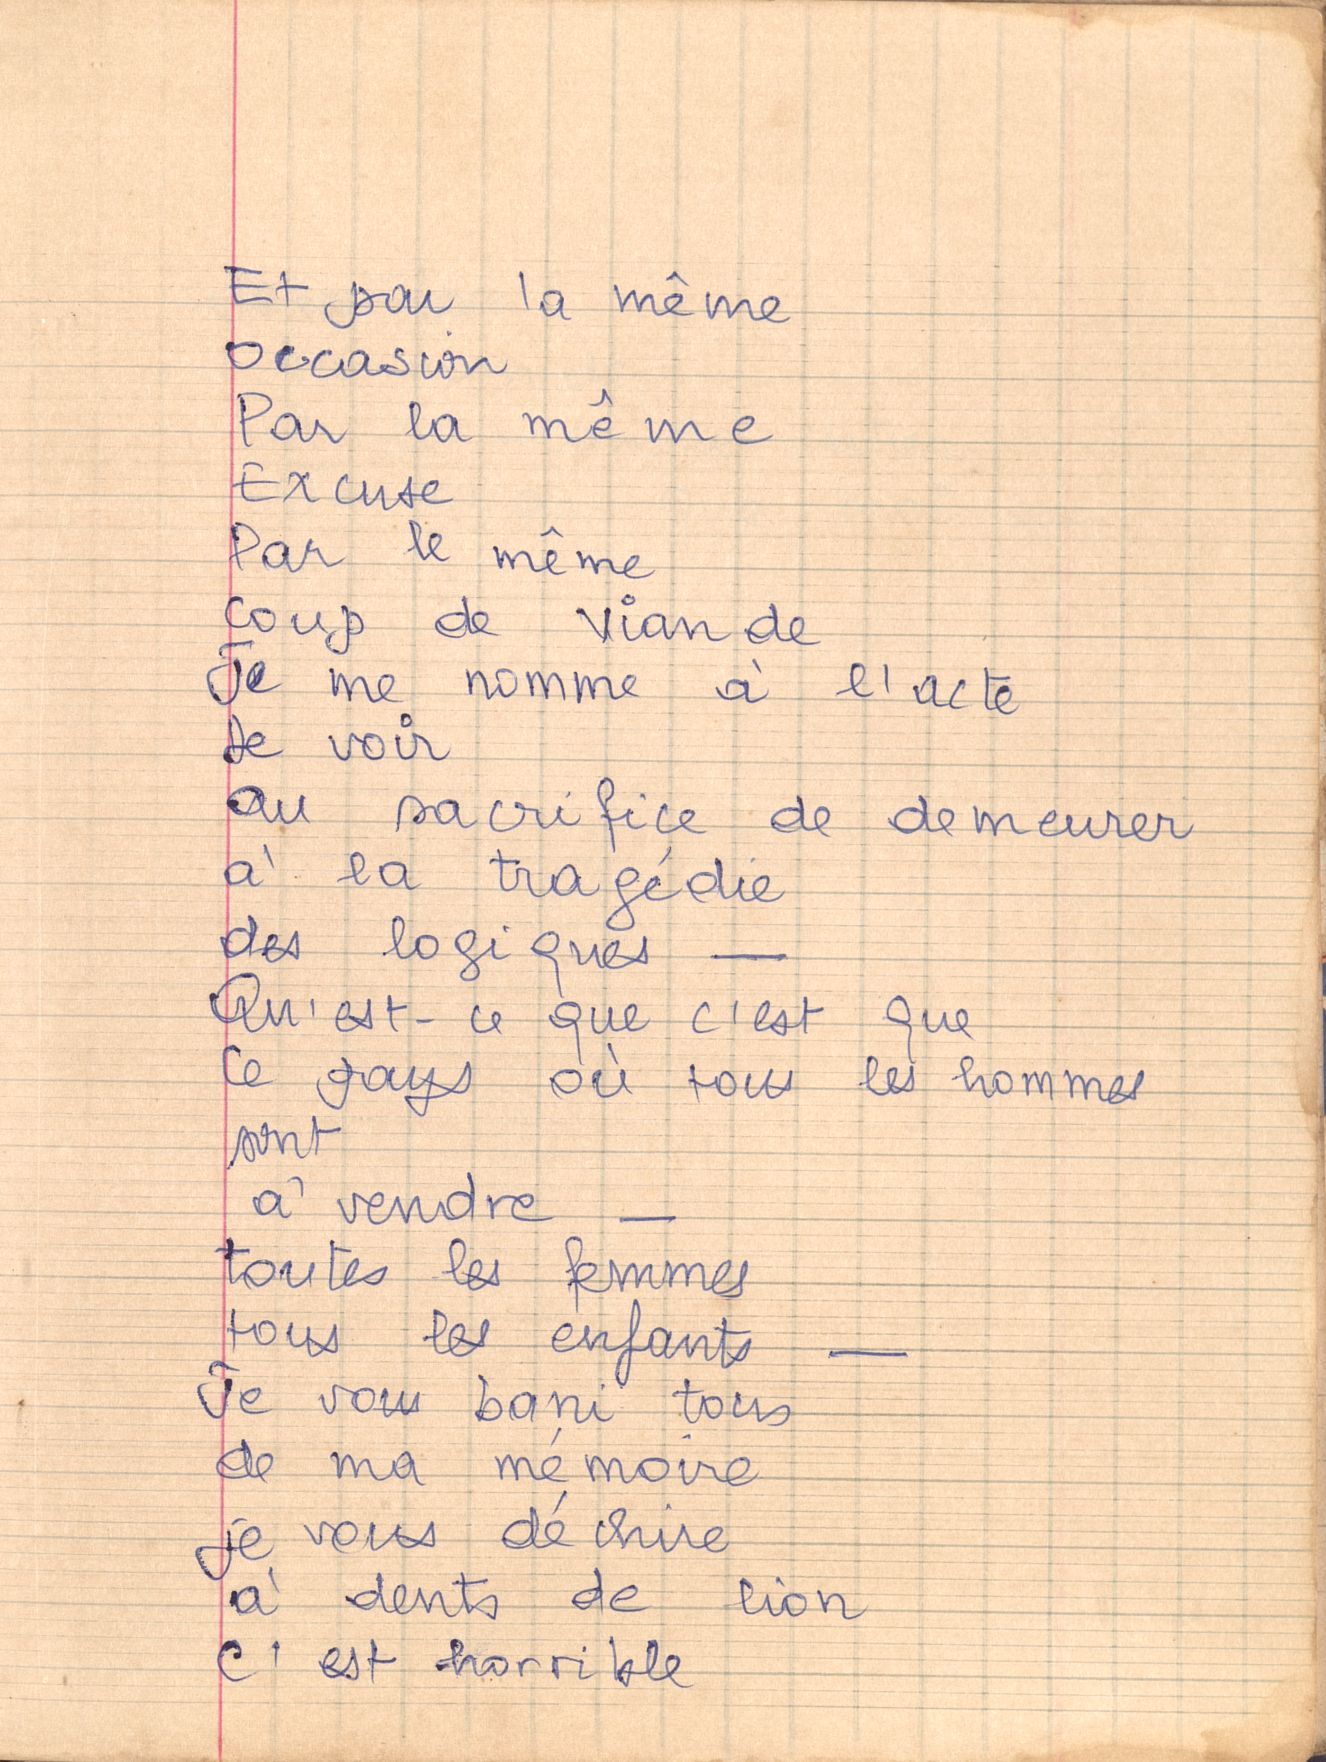 Et par la même
occasion
Par la même
Excuse
Par le même
coup de viande
Je me nomme à l'acte
de voir
au sacrifice de demeurer
à la tragédie
des logiques —
Qu'est-ce que c'est que
ce pays où tous les hommes
sont
à vendre —
toutes les femmes
tous les enfants —
Je vous bani tous
de ma mémoire
je vous déchire
à dents de lion
c'est horrible